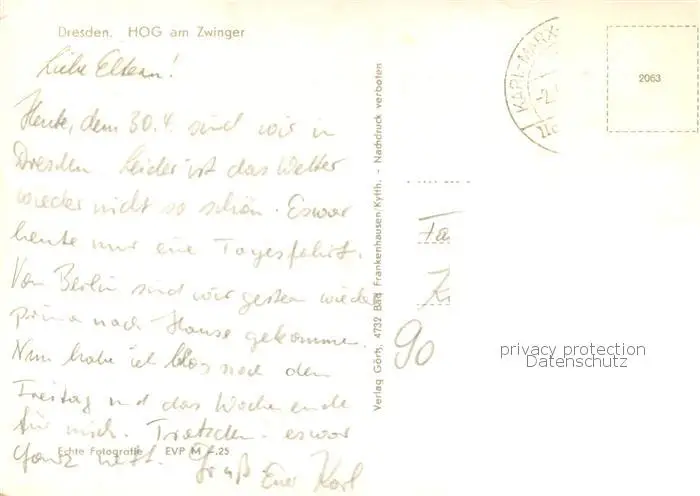 Dresden. HOG am Zwinger
Liebe Eltern!
Heute, dem 30.4. sind wir in
Dresden. Leider ist das Wetter
wieder nicht so schön. Es war
heute nur eine Tagesfahrt.
Von Berlin sind wir gestern wieder
prima nach Hause gekommen.
Nun habe ich blos noch den
Freitag und das Wochenende
für mich. Trotzdem es war
ganz nett. Gruß Euer Karl
Echte Fotografie EVP M -.25
Verlag Görtz, 4732 Bad Frankenhausen/Kyffh. - Nachdruck verboten
KARL-MARX-
2063
Fa
90
privacy protection
Datenschutz